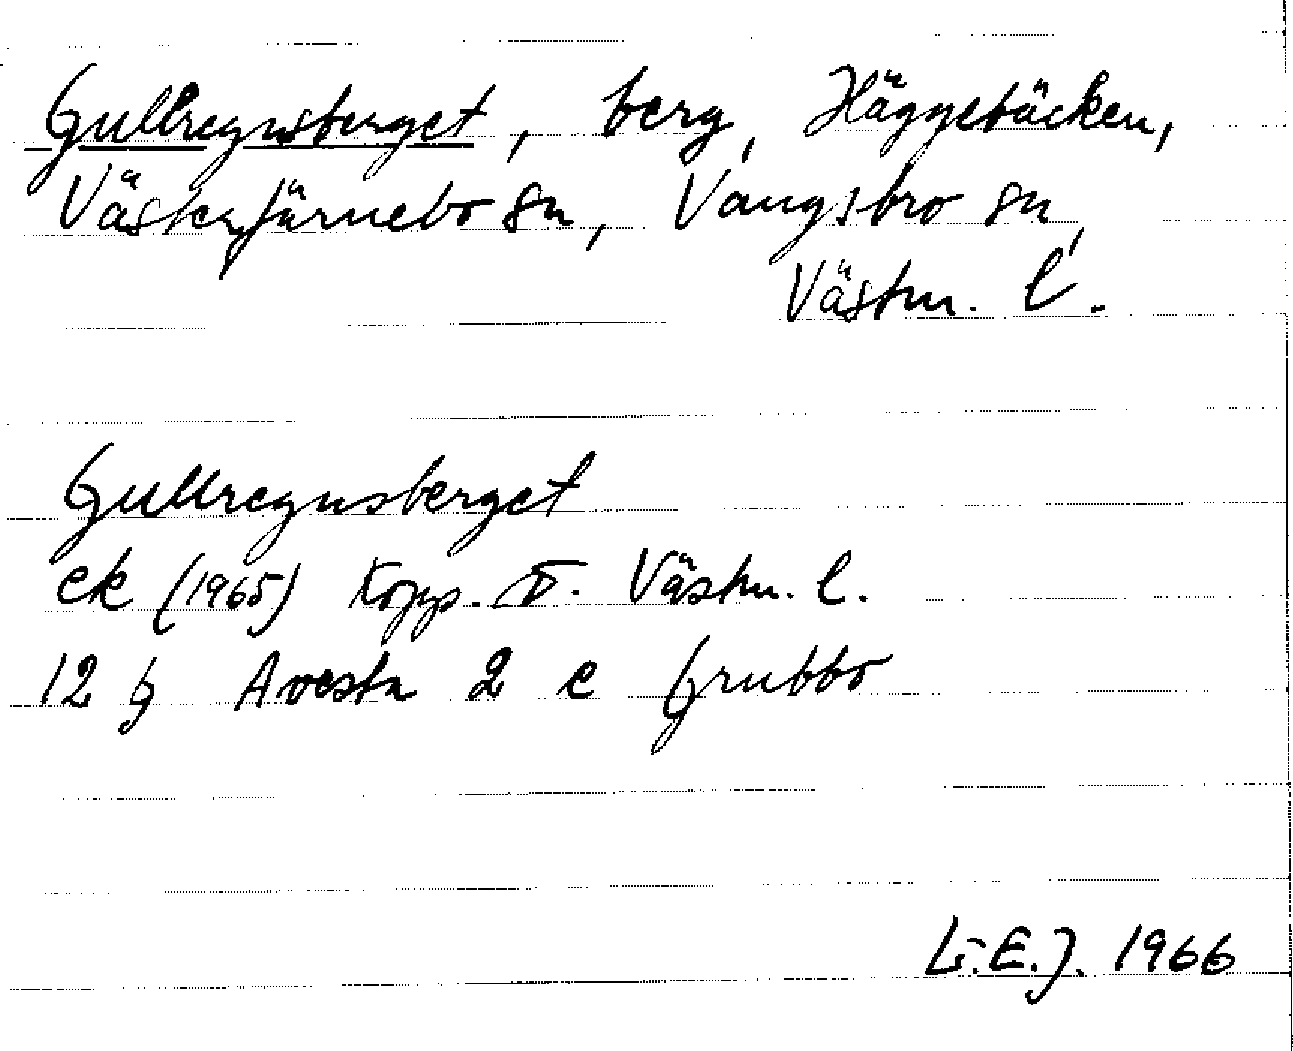 Gullregnsberget, berg, Häggebäcken,
Västerfärnebo sn, Vangsbro sn,
Västm. l.
Gullregnsberget
ek (1965) Kopp. o. Västm. l.
12 G Avesta 2 e Grubbo
L.E.J. 1966